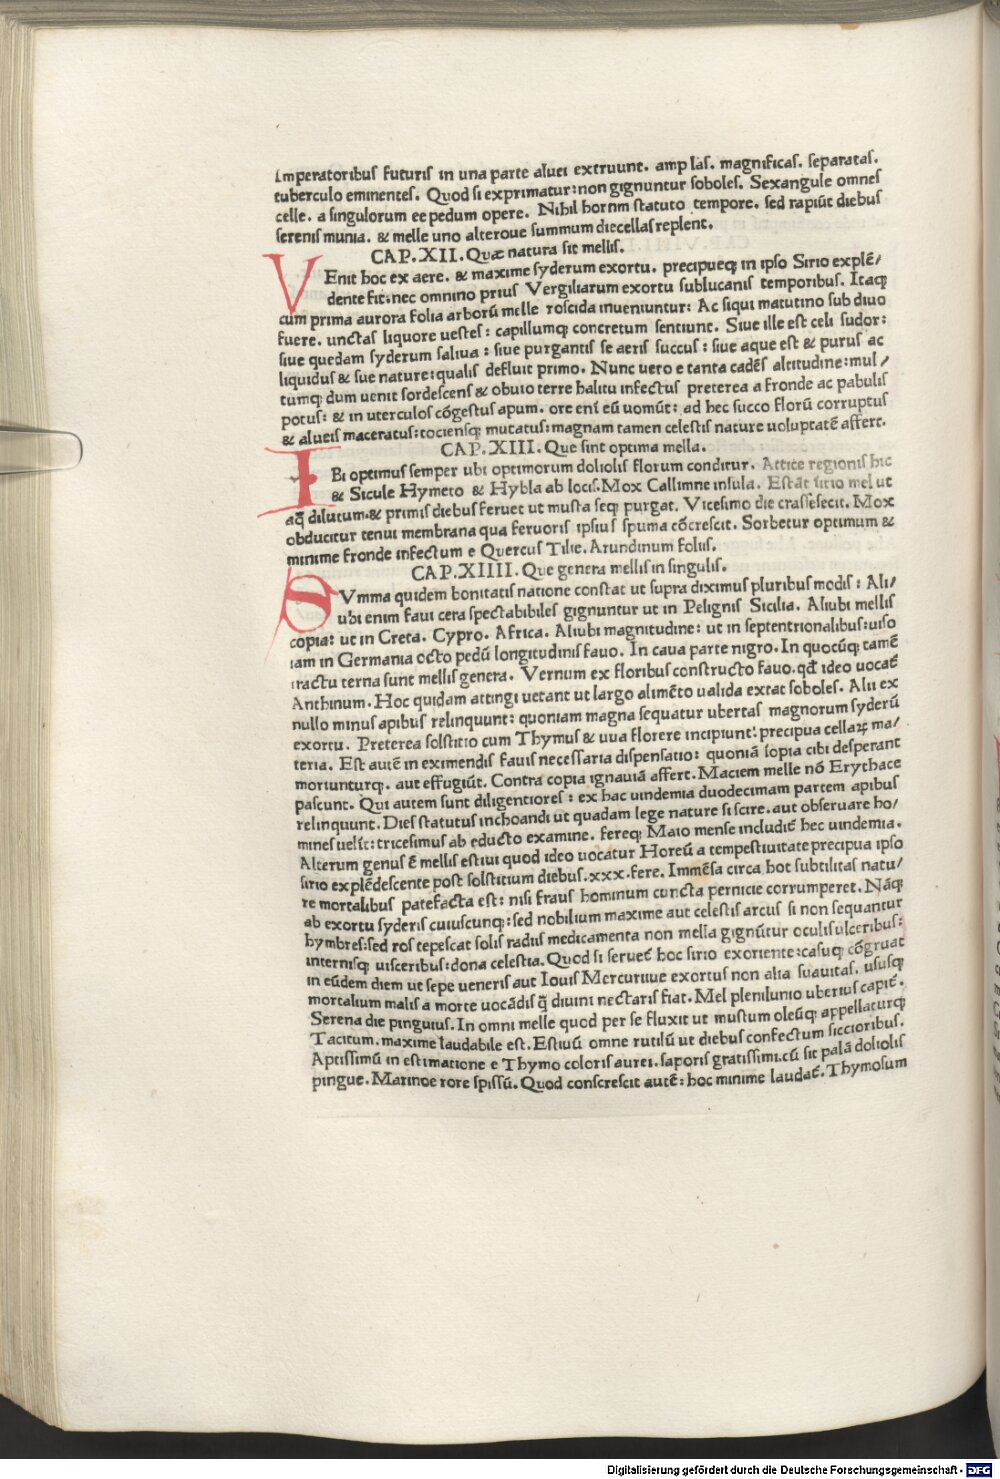 Imperatoribus futuris in una parte aluei extruunt. amplas. magnificas. separatas.
tuberculo eminentes. Quod si exprimatur: non gignuntur soboles. Sexangule omnes
celle. a singulorum ee pedum opere. Nihil hornm statuto tempore. sed rapiũt diebus
serenis munia. & melle uno alteroue summum die cellas replent.
CAP. XII. Quæ natura sit mellis.
VEnit hoc ex aere. & maxime syderum exortu. precipueq; in ipso Sirio explẽ/
dente fit: nec omnino prius Vergiliarum exortu sublucanis temporibus. Itaq;
cum prima aurora folia arborũ melle roscida inueniuntur: Ac siqui matutino sub diuo
fuere. unctas liquore uestes: capillumq; concretum sentiunt. Siue ille est celi sudor:
siue quedam syderum saliua: siue purgantis se aeris succus: siue aque est & purus ac
liquidus & sue nature: qualis defluit primo. Nunc uero e tanta cadẽs altitudine: mul/
tumq; dum uenit sordescens & obuio terre halitu infectus preterea a fronde ac pabulis
potus: & in uterculos cõgestus apum. ore eni eũ uomũt: ad hec succo florũ corruptus
& alueis maceratus: tociensq; mutatus: magnam tamen celestis nature uoluptatẽ affert.
CAP. XIII. Que sint optima mella.
IBi optimus semper ubi optimorum doliolis florum conditur. Attice regionis hic
& Sicule Hymeto & Hybla ab locis. Mox Callimne insula. Estãt sirio mel ut
aq̃ dilutum. & primis diebus feruet ut musta seq; purgat. Vicesimo die crassescit. Mox
obducitur tenui membrana qua feruoris ipsius spuma cõcrescit. Sorbetur optimum &
minime fronde infectum e Quercus Tilie. Arundinum foliis.
CAP. XIIII. Que genera mellis in singulis.
SVmma quidem bonitatis natione constat ut supra diximus pluribus modis: Ali/
ubi enim faui cera spectabiles gignuntur ut in Pelignis Sicilia. Aliubi mellis
copia: ut in Creta. Cypro. Africa. Aliubi magnitudine: ut in septentrionalibus: uiso
iam in Germania octo pedũ longitudinis fauo. In caua parte nigro. In quocũq; tamẽ
tractu terna sunt mellis genera. Vernum ex floribus constructo fauo. qđ ideo uocãt
Anthinum. Hoc quidam attingi uetant ut largo alimẽto ualida extat soboles. Alii ex
nullo minus apibus relinquunt: quoniam magna sequatur ubertas magnorum syderũ
exortu. Preterea solstitio cum Thymus & uua florere incipiunt: precipua cellaꝝ ma/
teria. Est autẽ in eximendis fauis necessaria dispensatio: quoniã iopia cibi desperant
moriunturq;. aut effugiũt. Contra copia ignauiã affert. Maciem melle nõ Erythace
pascunt. Qui autem sunt diligentiores: ex hac uindemia duodecimam partem apibus
relinquunt. Dies statutus inchoandi ut quadam lege nature si scire. aut obseruare ho/
mines uelĩt: tricesimus ab educto examine. fereq; Maio mense includit̃ hec uindemia.
Alterum genus ẽ mellis estiui quod ideo uocatur Horeũ a tempestiuitate precipua ipso
sirio explẽdescente post solstitium diebus. xxx. fere. Immẽsa circa hoc subtilitas natu/
re mortalibus patefacta est: nisi fraus hominum cuncta pernicie corrumperet. Nãq;
ab exortu syderis cuiuscunq;: sed nobilium maxime aut celestis arcus si non sequantur
hymbres: sed ros tepescat solis radiis medicamenta non mella gignũtur oculis ulceribus:
internisq; uisceribus: dona celestia. Quod si seruet̃ hoc sirio exoriente: casuq; cõgruat
in eũdem diem ut sepe ueneris aut Iouis Mercuriiue exortus non alia suauitas. uisusq;
mortalium malis a morte uocãdis q̃ diuini nectaris fiat. Mel plenilunio uberius capit̃.
Serena die pinguius. In omni melle quod per se fluxit ut mustum oleũq; appellaturq;
Tacitum. maxime laudabile est. Estiuũ omne rutilũ ut diebus confectum siccioribus.
Aptissimũ in estimatione e Thymo coloris aurei. saporis gratissimi. cũ sit palã doliolis
pingue. Marinoe rore spissũ. Quod conscrescit autẽ: hoc minime laudat̃. Thymosum
Digitalisierung gefördert durch die Deutsche Forschungsgemeinschaft - DFG